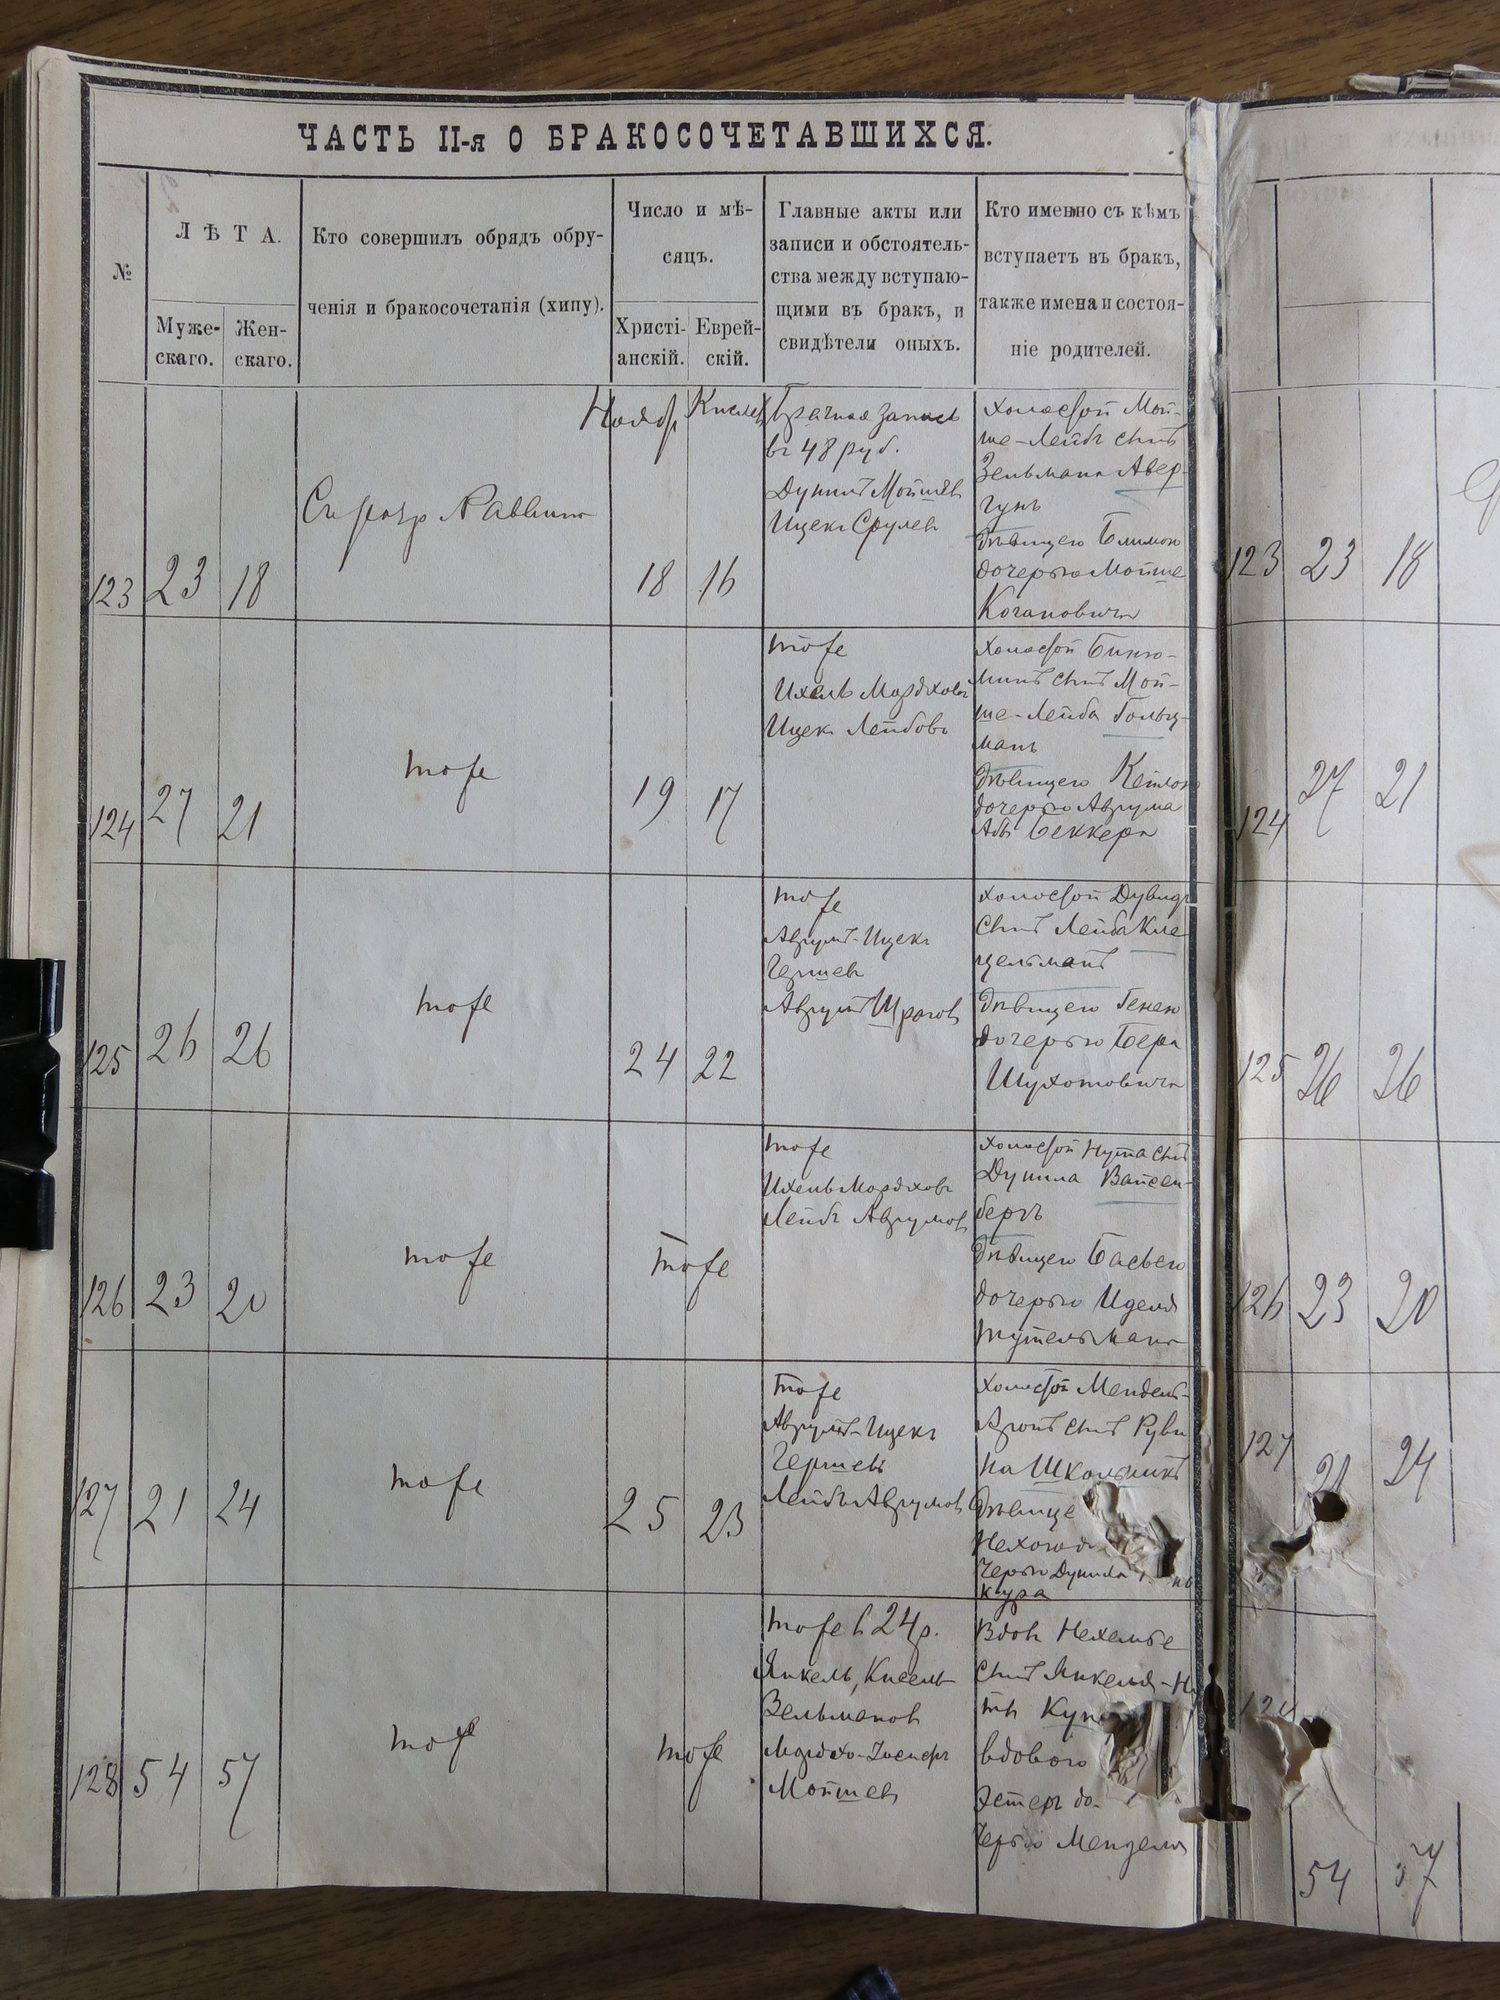 ЧАСТЬ II-я О БРАКОСОЧЕТАВШИХСЯ.
№
ЛѢТА.
Муже-
скаго.
Жен-
скаго.
Кто совершилъ обрядъ обру-
ченія и бракосочетанія (хипу).
Число и мѣ-
сяцъ.
Христі-
анскій.
Еврей-
скій.
Главные акты или
записи и обстоятель-
ства между вступаю-
щими въ бракъ, и
свидѣтели оныхъ.
Кто именно съ кѣмъ
вступаетъ въ бракъ,
также имена и состоя-
ніе родителей.
123
23
18
Раввинъ
Ноябр
18
Кислев
16
Брачная запись
въ 48 руб.
Дунилъ Мойшев
Ицекъ Срулев
холостой Мой-
ше-Лейбъ сынъ
Зельмана Авер-
гунъ
дѣвицею Блимою
дочерью Мойше
Когановича
124
27
21
тоже
19
17
тоже
Ихель Мордховъ
Ицекъ Лейбовъ
холостой Бинго-
минъ сынъ Мой-
ше-Лейба Гольц-
манъ
дѣвицею Кейлою
дочерью Аврума
Абы Беккера
125
26
26
тоже
24
22
тоже
Аврумъ-Ицекъ
Гершевъ
Аврумъ Шрагов
холостой Дувидъ
сынъ Лейба Кле
цельманъ
дѣвицею Генею
дочерью Бера
Шухотовича
126
23
20
тоже
тоже
тоже
Ихель Мордховъ
Лейбъ Аврумов
холостой Нута сынъ
Дунила Вайсен-
бергъ
дѣвицею Басьею
дочерью Иделя
тутельмана
127
21
24
тоже
25
23
тоже
Аврумъ-Ицекъ
Гершевъ
Лейбъ Аврумов
холостой Мендель-
Аронъ сынъ Руви
на Школьникъ
дѣвице
Нехою д
черью Дунила
кура
128
54
57
тоже
тоже
тоже в 24 р.
Янкель, Кисель
Зельманов
Мордхо-
Мойшев
Вдовъ Нехемье
сынъ Янкеля-Но
тъ
вдовою
Эстеръ до-
черью Менделя
123
23
18
124
27
21
125
26
26
126
23
20
127
21
24
54
57